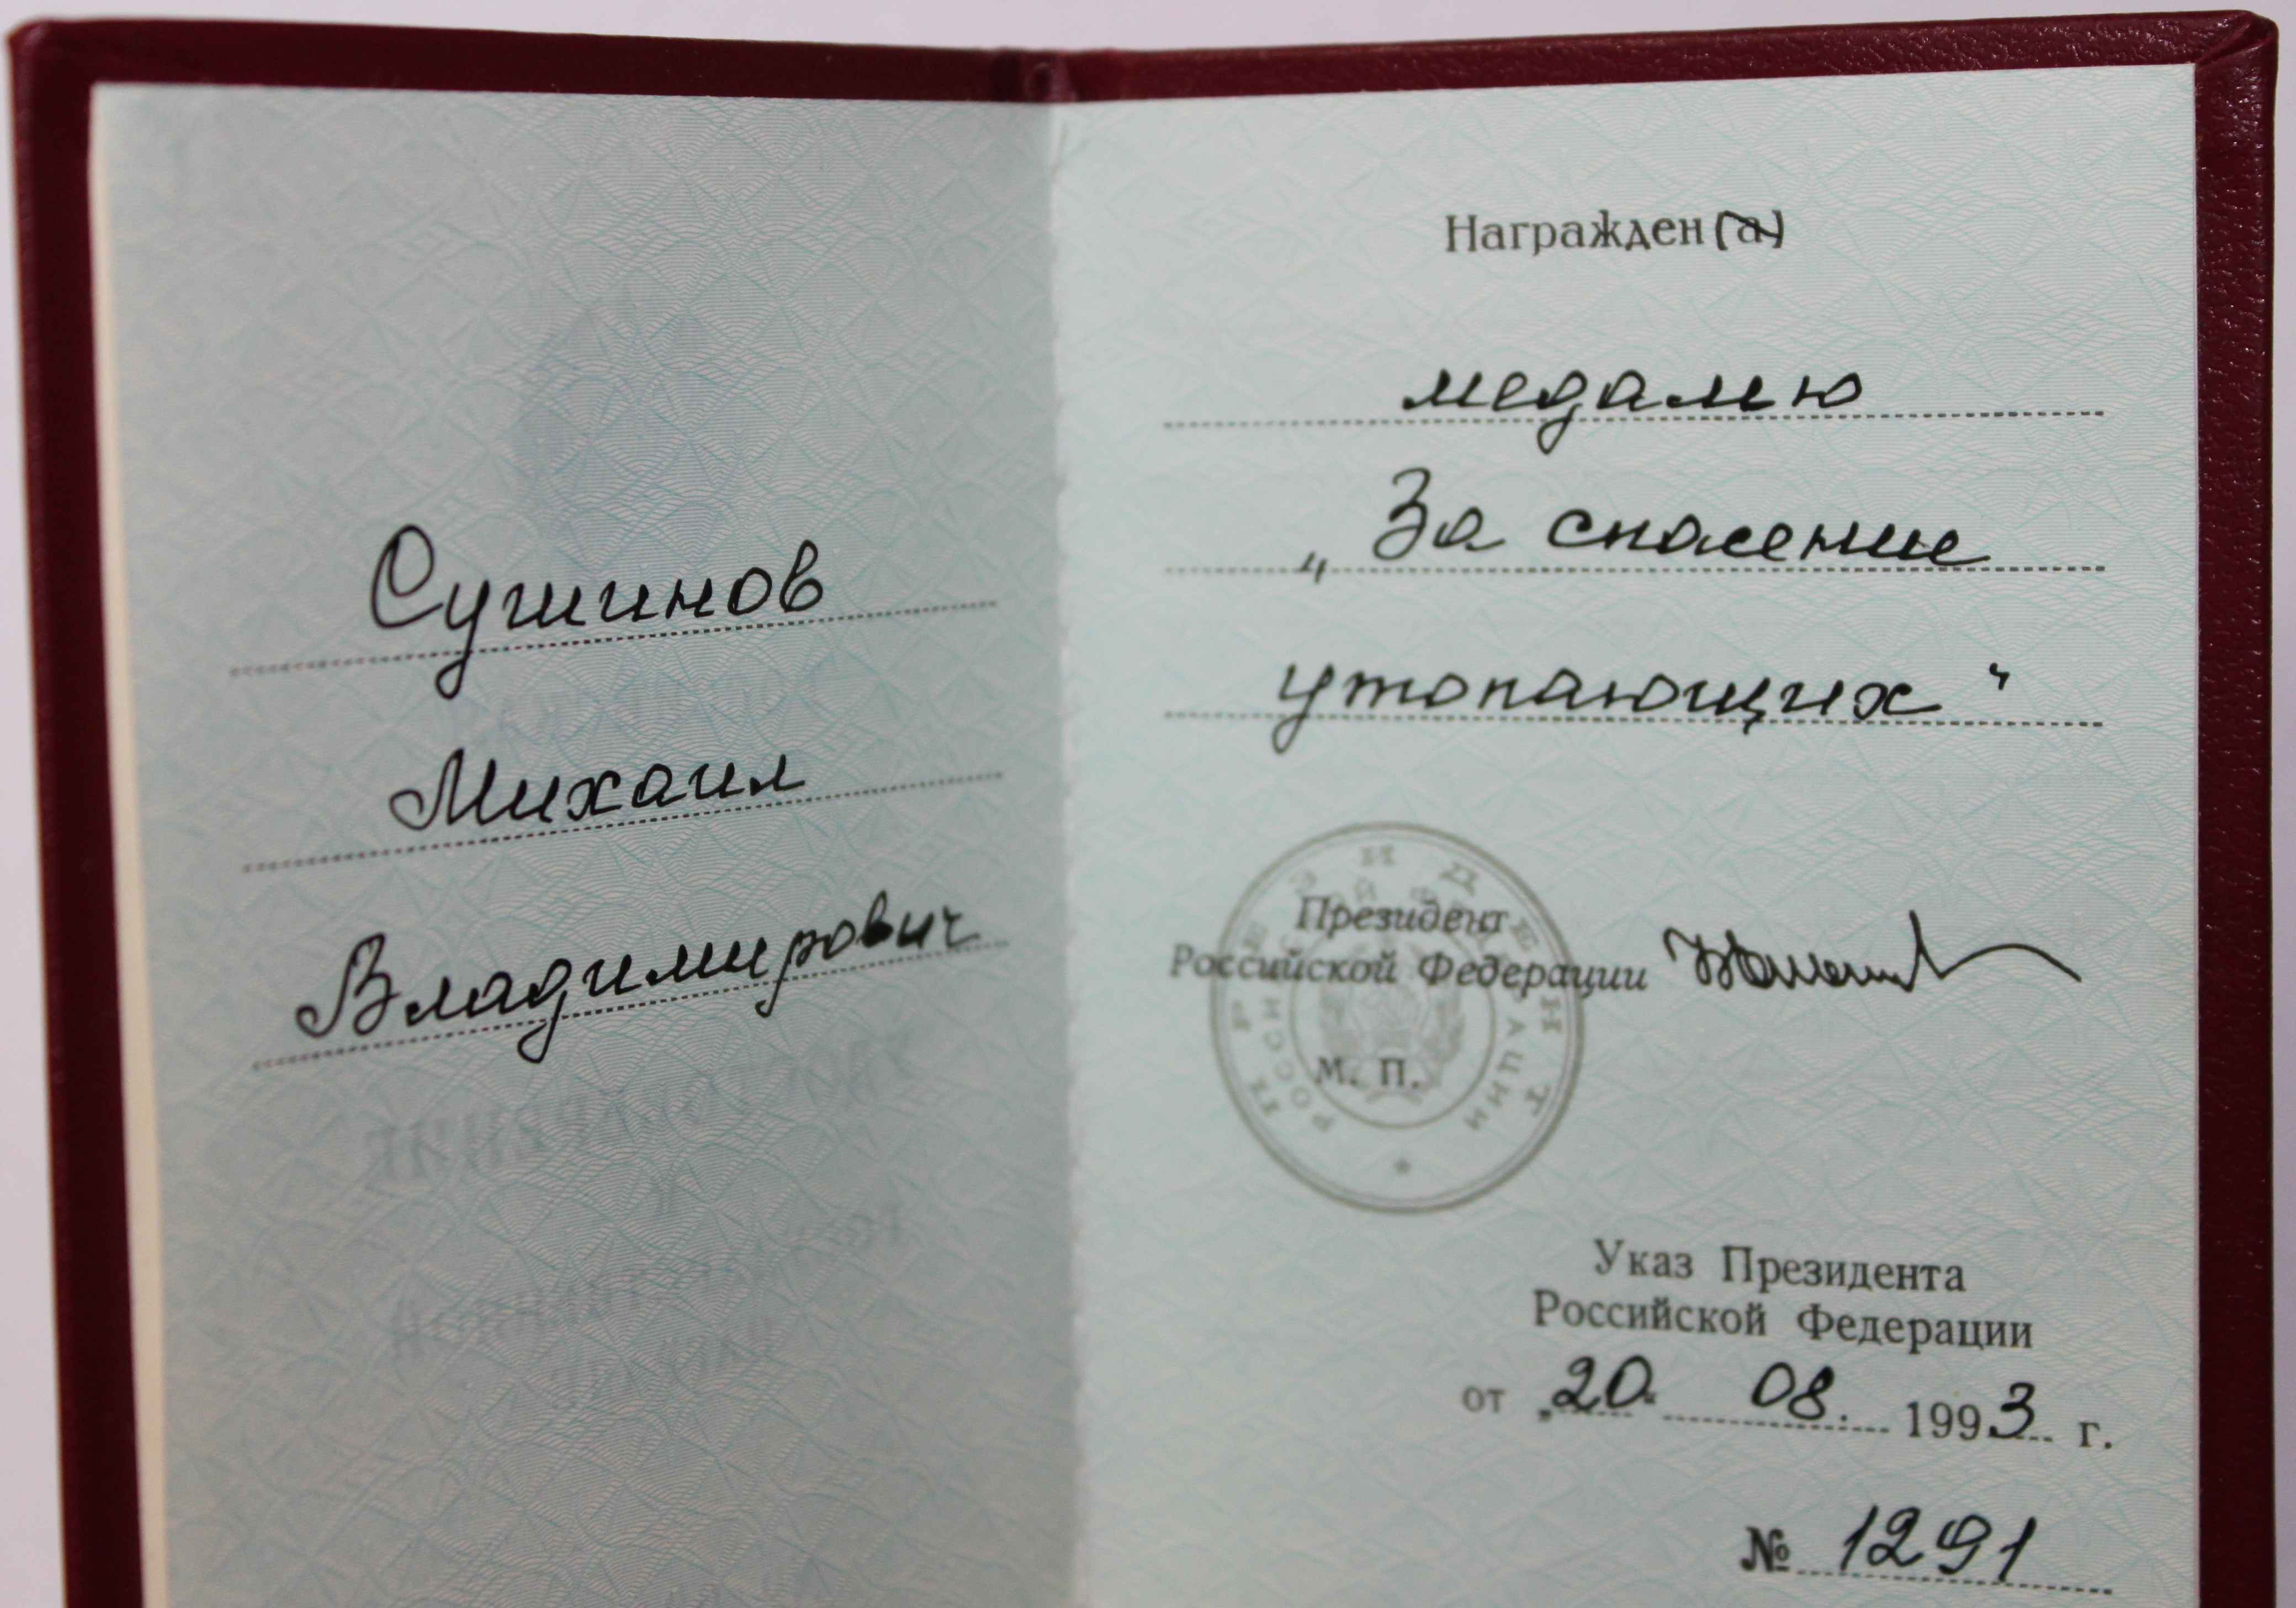 Сушинов
Михаил
Владимирович
Награжден(а)
медалью
„За спасение
утопающих“
ПРЕЗИДЕНТ
РОССИЙСКОЙ ФЕДЕРАЦИИ
Президент
Российской Федерации
М. П.
Указ Президента
Российской Федерации
от „20“ 08. 1993 г.
№ 1291